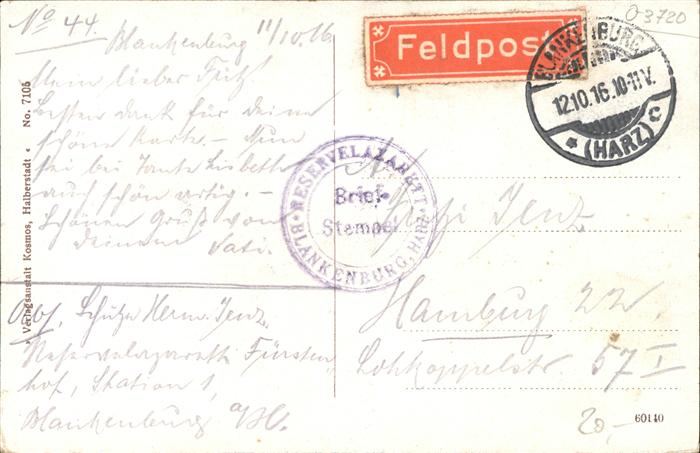 No 44.
Blankenburg 11/10.16
Mein lieber Fritz!
Besten dank für deine
schöne Karte. - Nun
sei bei Tante Lisbeth
auch schön artig. -
Schönen Gruß von
Deinem
Vati.
Abs. Schütze Herm. Jenz.
Reservelazarett Fürsten
hof, Station 1,
Blankenburg a/H.
Verlagsanstalt Kosmos, Halberstadt • No. 7105
Feldpost
BLANKENBURG
12.10.16.10-11V.
* (HARZ) C
RESERVELAZARETT
Brief-
Stempel
BLANKENBURG, HARZ
Jenz
Hamburg 22.
Lohkoppelstr. 57 I
O 3720
20,-
60140